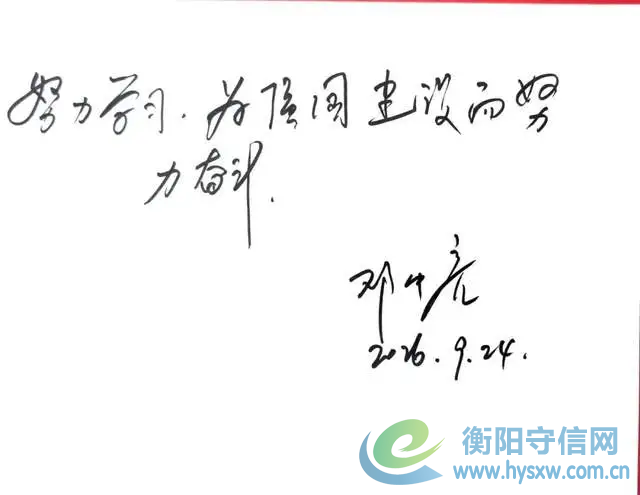 努力学习.为强国建设而努
力奋斗.
邓中亮
2026.9.24.
衡阳守信网
www.hysxw.com.cn